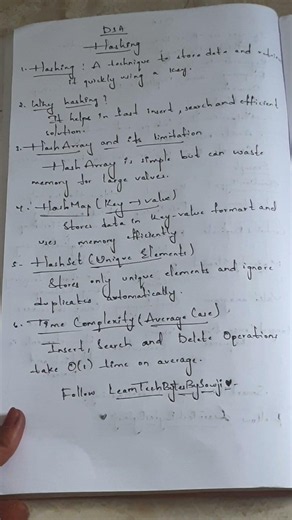 DSA
Hashing
1. Hashing : A technique to store data and
it quickly using a key.
2. Why hashing?
It helps in fast insert, search and efficient
solution.
3. HashArray and its limitation
HashArray is simple but can waste
memory for large values.
4. HashMap (Key → value)
Stores data in key-value format and
uses memory efficiently.
5. HashSet (Unique Elements)
Stores only unique elements and ignore
duplicates automatically.
6. Time Complexity (Average Case)
Insert, Search and Delete Operations
take O(1) time on average.
Follow LearnTechBytesBySowji ♥.